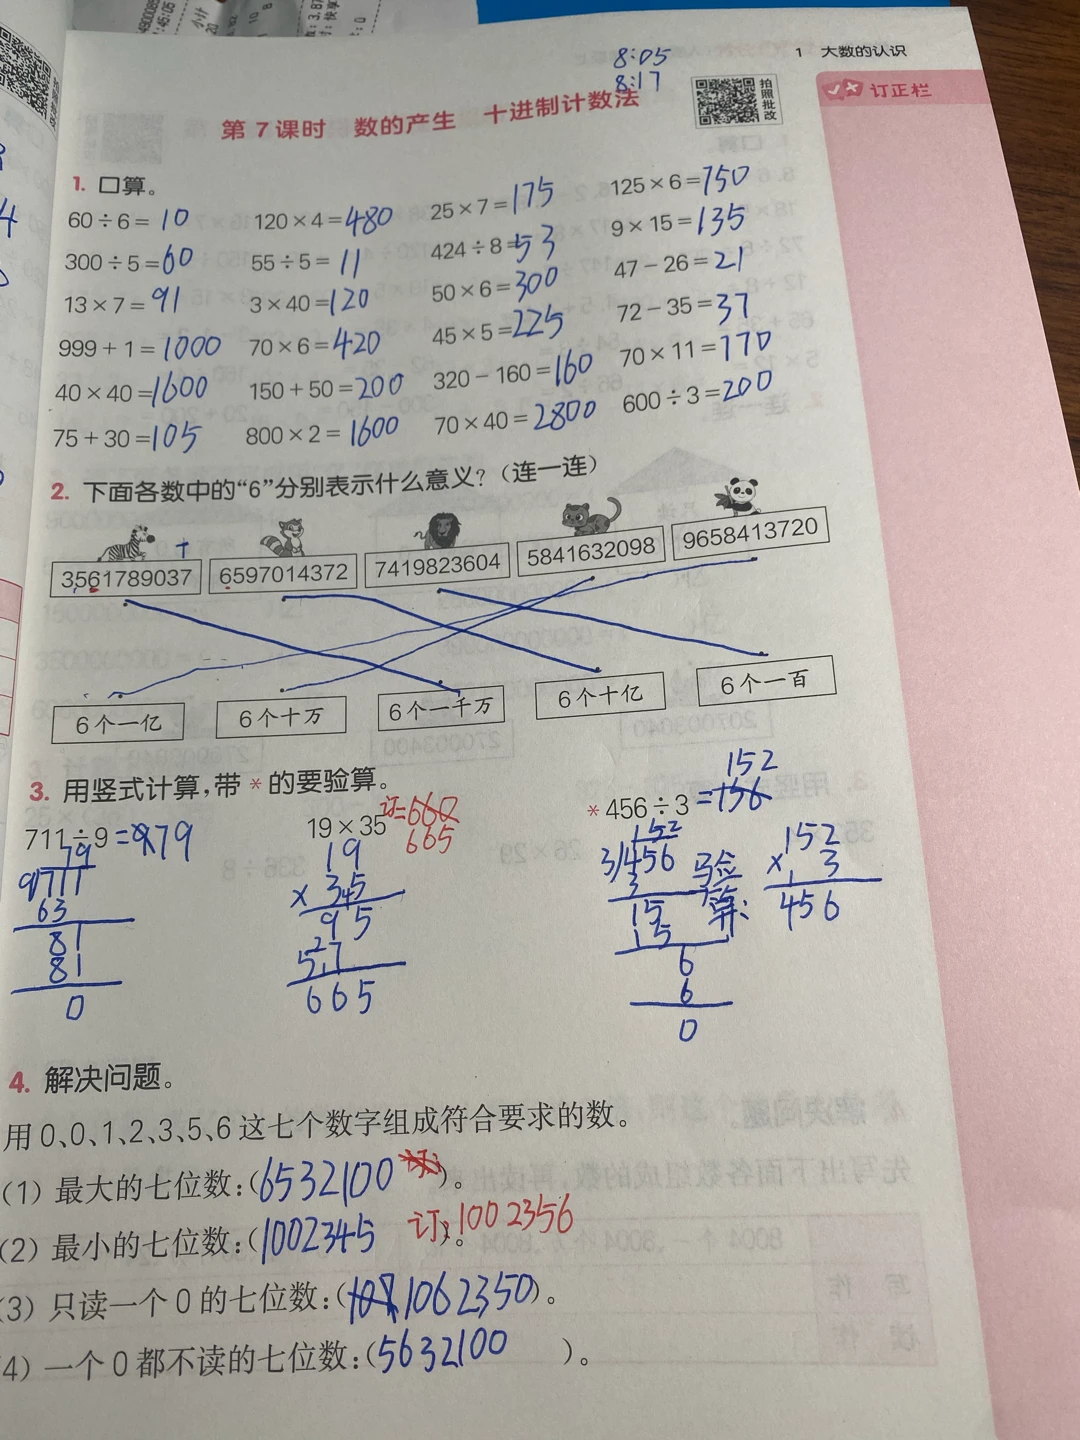 1 大数的认识
8:05
8:17
拍照批改
订正栏
第7课时 数的产生 十进制计数法
1. 口算。
60÷6=10 120×4=480 25×7=175 125×6=750
300÷5=60 55÷5=11 424÷8=53 9×15=135
13×7=91 3×40=120 50×6=300 47-26=21
999+1=1000 70×6=420 45×5=225 72-35=37
40×40=1600 150+50=200 320-160=160 70×11=770
75+30=105 800×2=1600 70×40=2800 600÷3=200
2. 下面各数中的“6”分别表示什么意义?(连一连)
3561789037 6597014372 7419823604 5841632098 9658413720
6个一亿 6个十万 6个一千万 6个十亿 6个一百
3. 用竖式计算,带*的要验算。
152
711÷9=79 19×35 订=660 *456÷3=156
665
79 19 152 152
9/711 ×35 3/456 验算: ×3
63 95 3 456
81 57 15
81 665 15
0 6
6
0
4. 解决问题。
用0、0、1、2、3、5、6这七个数字组成符合要求的数。
(1) 最大的七位数:(6532100)。
(2) 最小的七位数:(1002345)。 订:1002356
(3) 只读一个0的七位数:(1062350)。
(4) 一个0都不读的七位数:(5632100)。